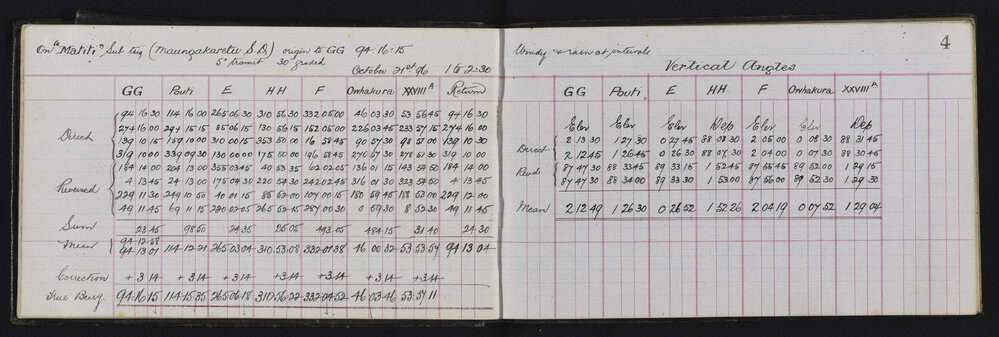 On "Matiti" Sub trig (Maungakaretu S.D.) origin to GG 94.16.15
5" transit 30" graded
October 21st 96 1 to 2.30
GG Pouti E HH F Owhakura XXVIII A Return
94 16 30 114 16 00 265 06 30 310 56 30 332 05 00 46 03 30 53 56 45 94 16 30
274 16 00 294 15 15 85 06 15 130 56 15 152 05 00 226 03 45 233 57 15 274 16 00
Direct 139 10 15 159 10 00 310 00 15 353 50 00 16 58 45 90 57 30 98 51 00 139 10 30
319 10 00 339 09 30 130 00 00 175 50 00 196 58 45 270 57 30 278 51 30 319 10 00
184 14 00 204 13 00 355 03 45 40 53 35 62 02 05 136 01 15 143 54 50 184 14 00
Reversed 4 13 45 24 13 00 175 04 30 220 54 30 242 02 45 316 01 30 323 54 50 4 13 45
229 11 30 249 10 50 40 01 15 85 52 00 107 00 15 180 59 45 188 53 00 229 12 00
49 11 45 69 11 15 220 02 05 265 52 15 287 00 30 0 59 30 8 52 30 49 11 45
Sum 23 45 98 50 24 35 25 05 493 05 484 15 31 40 24 30
94-12-58
Mean 94 13 01 114-12-21 265 03 04 310.53.08 332 01 38 46 00 32 53-53-57 94 13 04
Correction + 3.14 + 3.14 + 3.14 + 3.14 + 3.14 + 3.14 + 3.14
True Bearg 94-16 15 114-15 35 265 06 18 310 56-22 332 04 52 46 03 46 53 57 11
Windy & rain at intervals
4
Vertical Angles
GG Pouti E HH F Owhakura XXVIII A
Elev Elev Elev Dep Elev Elev Dep
Direct 2 13 30 1 27 30 0 27 45 88 08 30 2 05 00 0 08 30 88 31 45
2 12 45 1 26 45 0 26 30 88 07 30 2 04 00 0 07 30 88 30 45
Revd 87 47 30 88 33 45 89 33 15 1 52 45 87 55 45 89 52 00 1 29 15
87 47 30 88 34 00 89 33 30 1 53 00 87 56 00 89 52 30 1 29 30
Mean 2 12 49 1 26 30 0 26 52 1 52 26 2 04 19 0 07 52 1 29 04